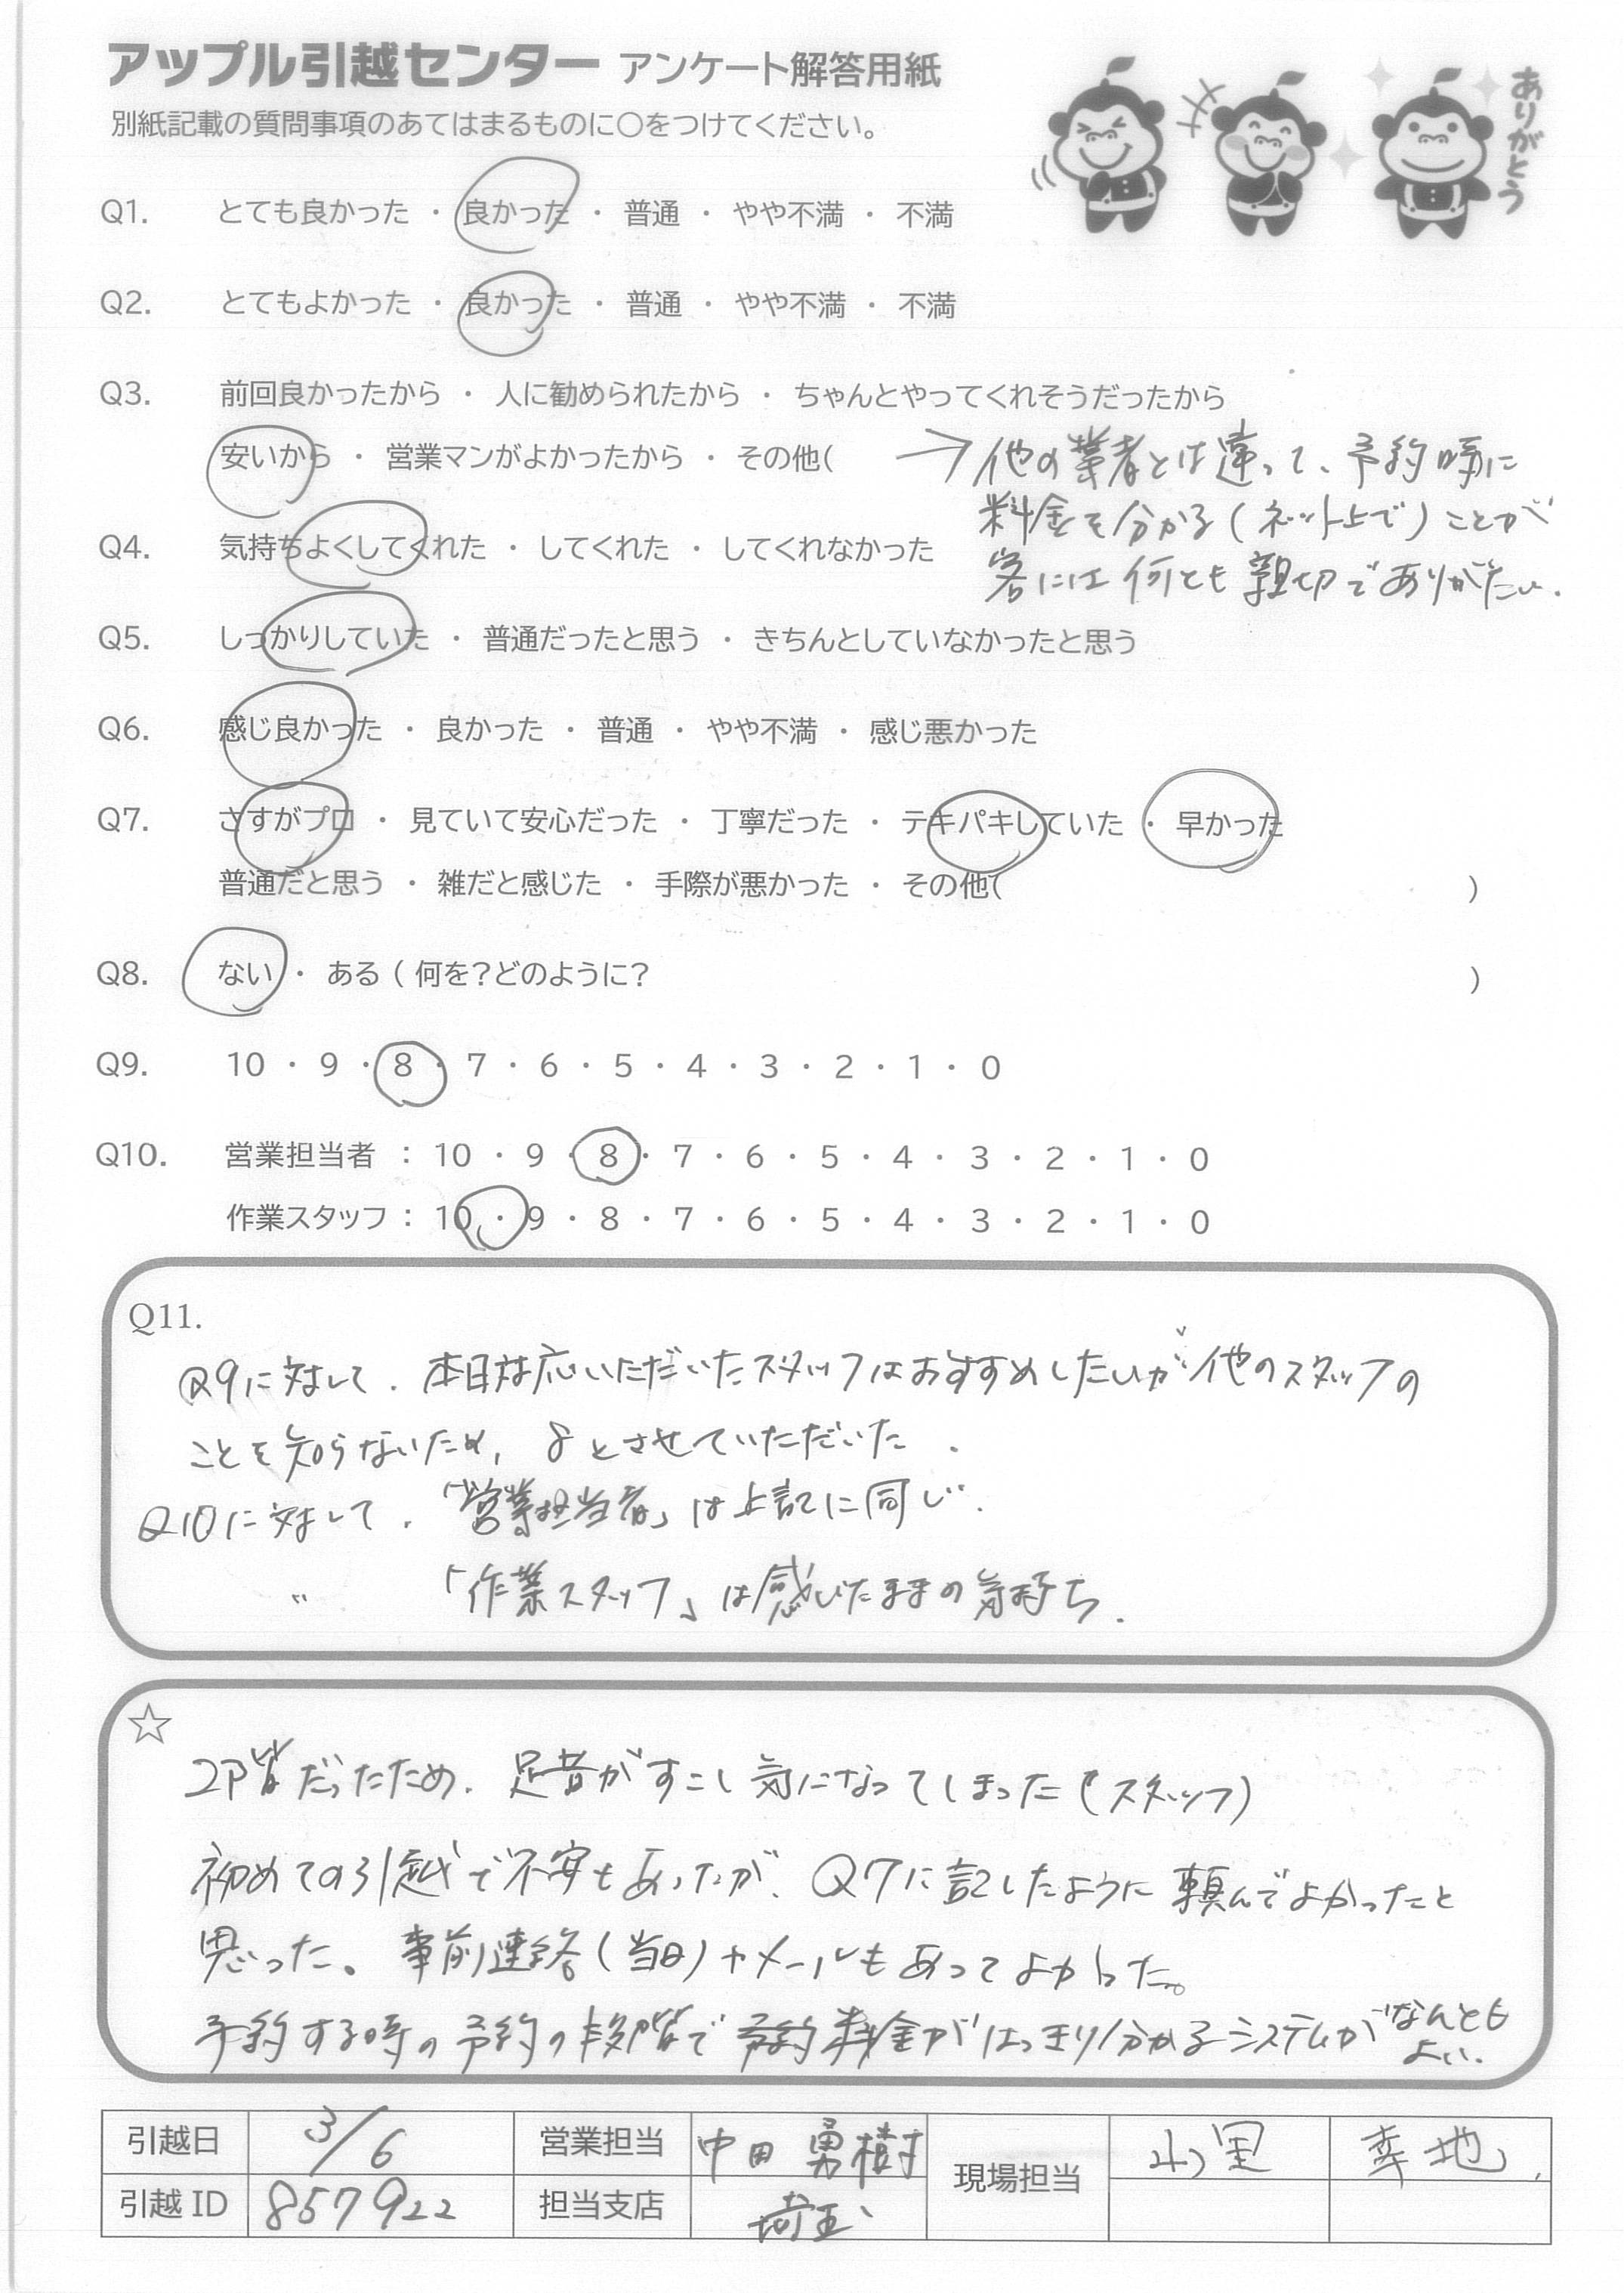 アップル引越センター アンケート解答用紙
別紙記載の質問事項のあてはまるものに〇をつけてください。
ありがとう
Q1. とても良かった ・ 良かった ・ 普通 ・ やや不満 ・ 不満
Q2. とてもよかった ・ 良かった ・ 普通 ・ やや不満 ・ 不満
Q3. 前回良かったから ・ 人に勧められたから ・ ちゃんとやってくれそうだったから
安いから ・ 営業マンがよかったから ・ その他(
→他の業者とは違って、予約時に
料金を分かる(ネット上で)ことが
客には何とも親切でありがたい.
Q4. 気持ちよくしてくれた ・ してくれた ・ してくれなかった
Q5. しっかりしていた ・ 普通だったと思う ・ きちんとしていなかったと思う
Q6. 感じ良かった ・ 良かった ・ 普通 ・ やや不満 ・ 感じ悪かった
Q7. さすがプロ ・ 見ていて安心だった ・ 丁寧だった ・ テキパキしていた ・ 早かった
普通だと思う ・ 雑だと感じた ・ 手際が悪かった ・ その他( )
Q8. ない ・ ある ( 何を?どのように? )
Q9. 10 ・ 9 ・ 8 ・ 7 ・ 6 ・ 5 ・ 4 ・ 3 ・ 2 ・ 1 ・ 0
Q10. 営業担当者 : 10 ・ 9 ・ 8 ・ 7 ・ 6 ・ 5 ・ 4 ・ 3 ・ 2 ・ 1 ・ 0
作業スタッフ : 10 ・ 9 ・ 8 ・ 7 ・ 6 ・ 5 ・ 4 ・ 3 ・ 2 ・ 1 ・ 0
Q11.
Q9に対して. 本日対応いただいたスタッフはおすすめしたいが他のスタッフの
ことを知らないため, 8とさせていただいた.
Q10に対して. 「営業担当者」は上記に同じ.
〃 「作業スタッフ」は感じたままの気持ち.
☆
2F階だったため. 足音がすこし気になってしまった(スタッフ)
初めての引越で不安もあったが、Q7に記したように頼んでよかったと
思った。事前連絡(当日)+メールもあってよかった。
予約する時の予約の段階で予約料金がはっきり分かるシステムがなんとも
よい.
引越日 3/6 営業担当 中田 勇樹 現場担当 小里 幸地
引越 ID 857922 担当支店 埼玉